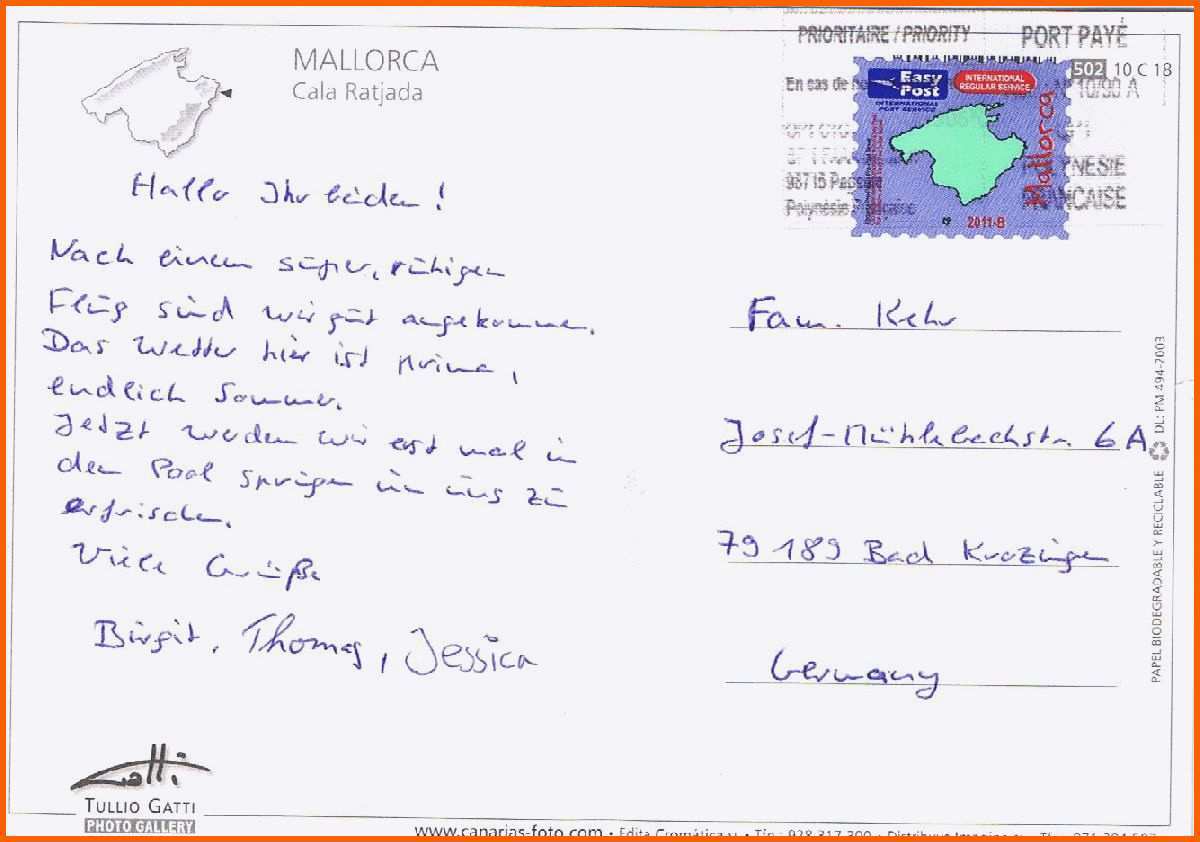 MALLORCA
Cala Ratjada
PRIORITAIRE / PRIORITY
PORT PAYÉ
502 10 C 18
En cas de
10/90 A
98715 Papeete
Polynésie Française
POLYNESIE
FRANCAISE
Easy
Post
INTERNATIONAL
POST SERVICE
INTERNATIONAL
REGULAR SERVICE
Mallorca
2011-B
Hallo Ihr beiden!
Nach einem super, ruhigen
Flug sind wir gut angekommen.
Das Wetter hier ist prima,
endlich Sommer.
Jetzt werden wir erst mal in
den Pool springen um uns zu
erfrischen.
Viele Grüße
Birgit, Thomas, Jessica
Fam. Kehr
Josef-Mühlebachstr. 6A
79189 Bad Krozingen
Germany
PAPEL BIODEGRADABLE Y RECICLABLE DL: PM 494-2003
Gatti
TULLIO GATTI
PHOTO GALLERY
www.canarias-foto.com • Edita Cromática • Tfn.: 928 317 300 • Distribuye